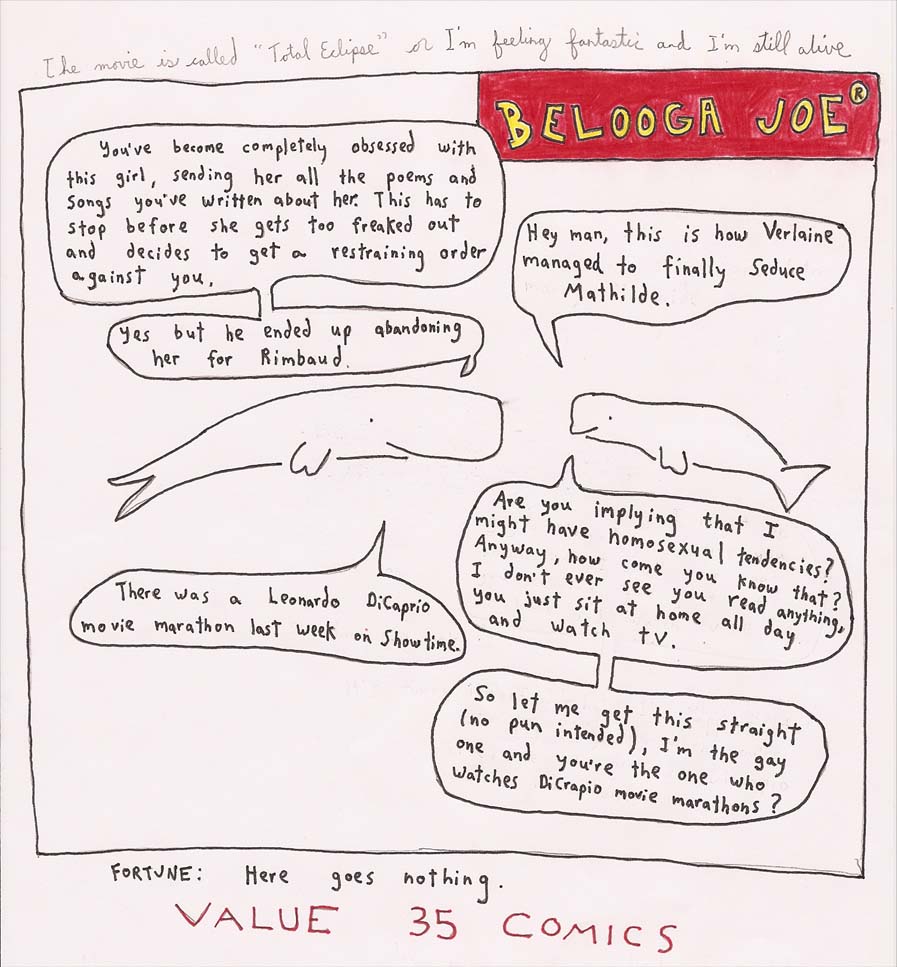 The movie is called "Total Eclipse" or I'm feeling fantastic and I'm still alive
BELOOGA JOE®
You've become completely obsessed with
this girl, sending her all the poems and
songs you've written about her. This has to
stop before she gets too freaked out
and decides to get a restraining order
against you.
Hey man, this is how Verlaine
managed to finally seduce
Mathilde.
Yes but he ended up abandoning
her for Rimbaud.
Are you implying that I
might have homosexual tendencies?
Anyway, how come you know that?
I don't ever see you read anything,
you just sit at home all day
and watch TV.
There was a Leonardo DiCaprio
movie marathon last week on Showtime.
So let me get this straight
(no pun intended), I'm the gay
one and you're the one who
watches DiCrapio movie marathons?
FORTUNE: Here goes nothing.
VALUE 35 COMICS